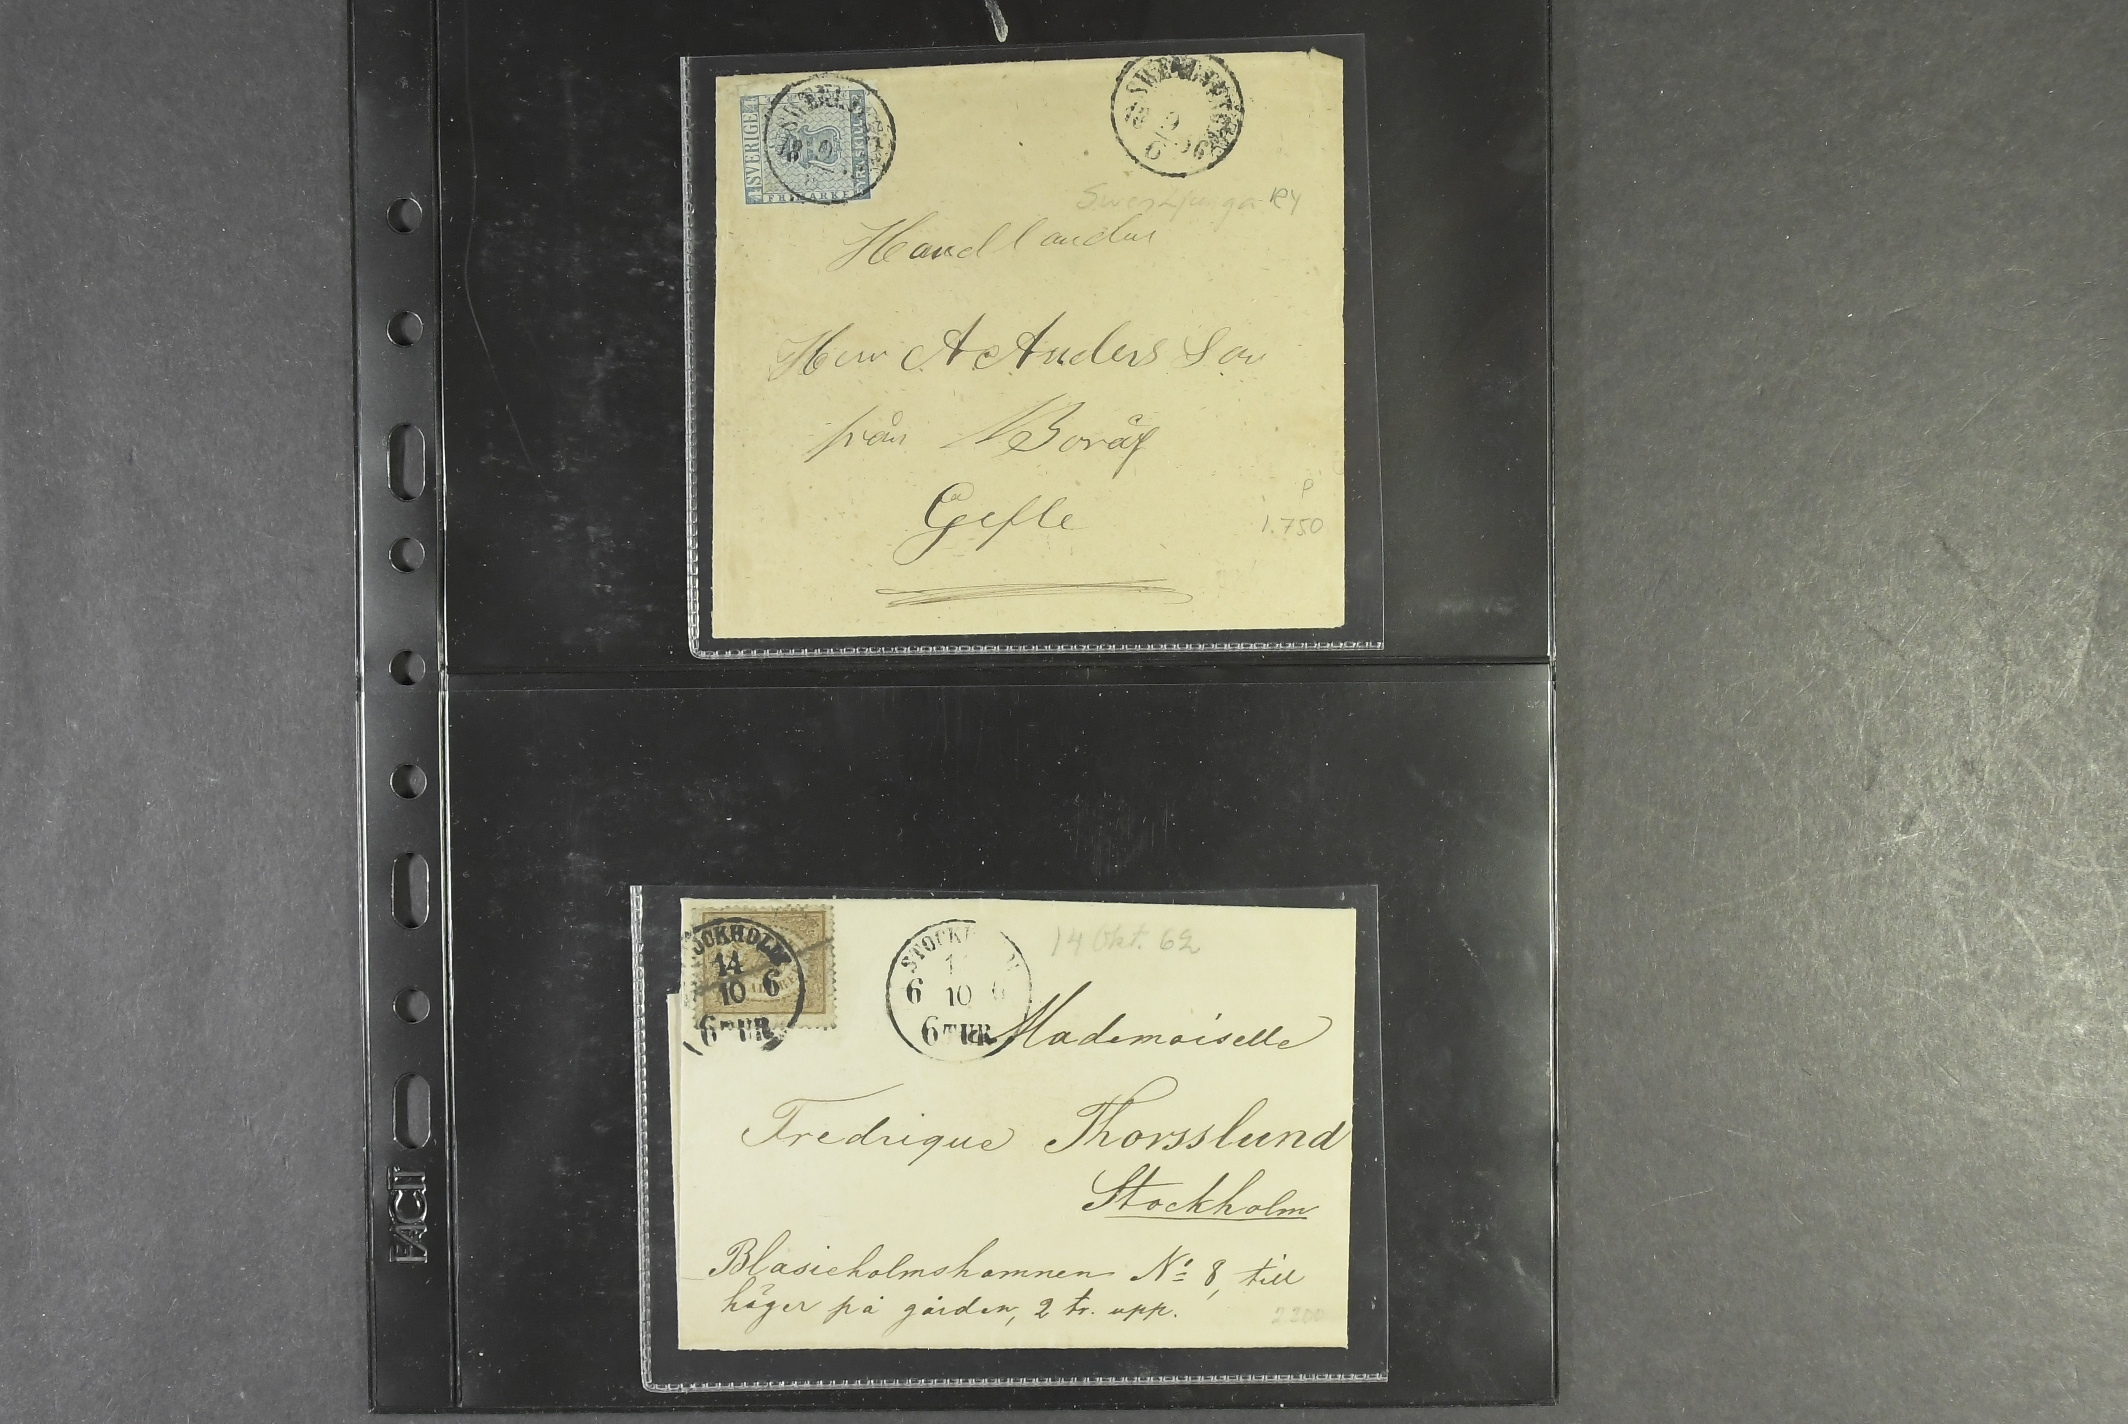 SVERIGE
FRIMÄRKE
18 9
18 9
6
Handlanden
Herr A Anders Son
från Borås
Gefle
P
1.750
STOCKHOLM
14
10 6
6 TUR
STOCK
6 10 6
6 TUR
14 Okt. 62
Mademoiselle
Fredrique Thorsslund
Stockholm
Blasieholmshamnen No 8, till
höger på gården, 2 tr. upp.
2300
FACIT